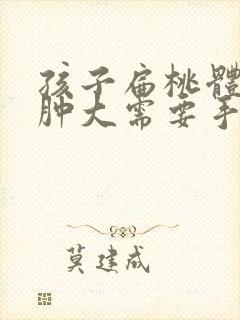 孩子扁桃體
肿大需要手
莫建成